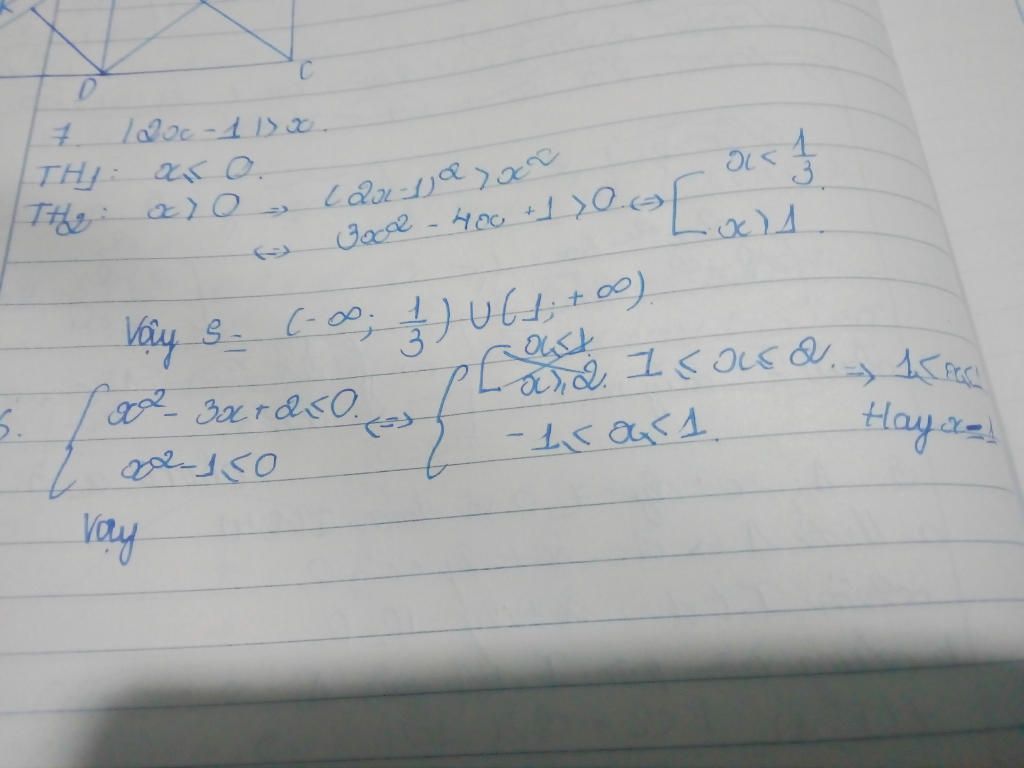 D C
7. |2x - 1| > x.
TH1: x ≤ 0.
TH2: x > 0 => (2x-1)² > x²
<=> 3x² - 4x + 1 > 0 <=> [ x < 1/3
x > 1.
Vậy S = (-∞; 1/3) ∪ (1; +∞)
{ x² - 3x + 2 ≤ 0. <=> { 1 ≤ x ≤ 2. => 1 ≤ x ≤
x² - 1 ≤ 0 -1 ≤ x ≤ 1. Hay x = 1
Vậy